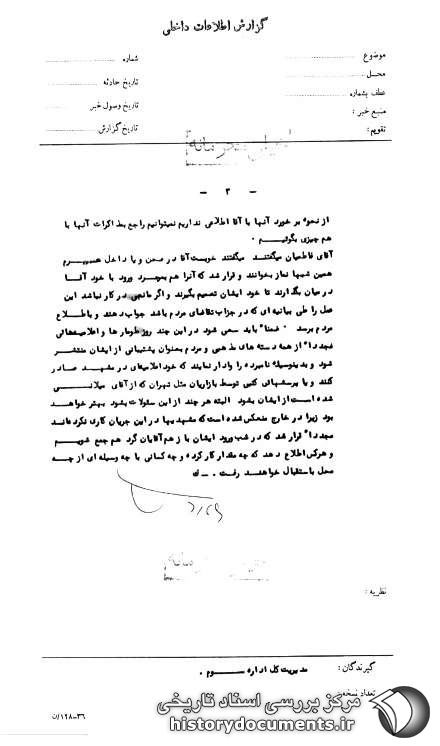 گزارش اطلاعات داخلی
موضوع
شماره
محل
تاریخ حادثه
عطف بشماره
تاریخ وصول خبر
منبع خبر :
تاریخ گزارش
تقویم :
- ۲ -
از نحوه بر خورد آنها با آقا اطلاعی نداریم نمیتوانیم راجع بمذاکرات آنها با
هم چیزی بگوئیم .
آقای فاطمیان میگفتند میگفتند خوبست آقا در صحن و یا داخل
همین شبها نماز بخوانند و قرار شد که آنرا هم بمجرد ورود با خود آقا
در میان بگذارند تا خود ایشان تصمیم بگیرند و اگر مانعی در کار نباشد این
عمل را طی بیانیه ای که در جواب تقاضای مردم باشد جواب دهند و باطلاع
مردم برسد . ضمنا" باید سعی شود در این چند روز طومارها و اعلامیه‌هائی
مجددا" از همه دسته های مذهبی و مردم بعنوان پشتیبانی از ایشان منتشر
شود و بدینوسیله نامبرده را وادار نمایند که خود اعلامیه‌ای در مشهد صادر
کنند و یا پرسشهای کتبی توسط بازاریان مثل تهران که از آقای میلانی
شده است از ایشان بشود البته هر چند از این سئولات بشود بهتر خواهد
بود زیرا در خارج منعکس شده است که مشهدیها در این جریان کاری نکرده‌اند
مجددا" قرار شد که در شب ورود ایشان باز هم آقایان گرد هم جمع شویم
و هرکس اطلاع دهد که چه مقدار کار کرده و چه کسانی با چه وسیله ای از چه
محل باستقبال خواهند رفت . - ك
نظریه :
گیرندگان :
مدیریت کل اداره سوم .
تعداد نسخه
۳۶-۱۲۸/ن
مرکز بررسی اسناد تاریخی
historydocuments.ir